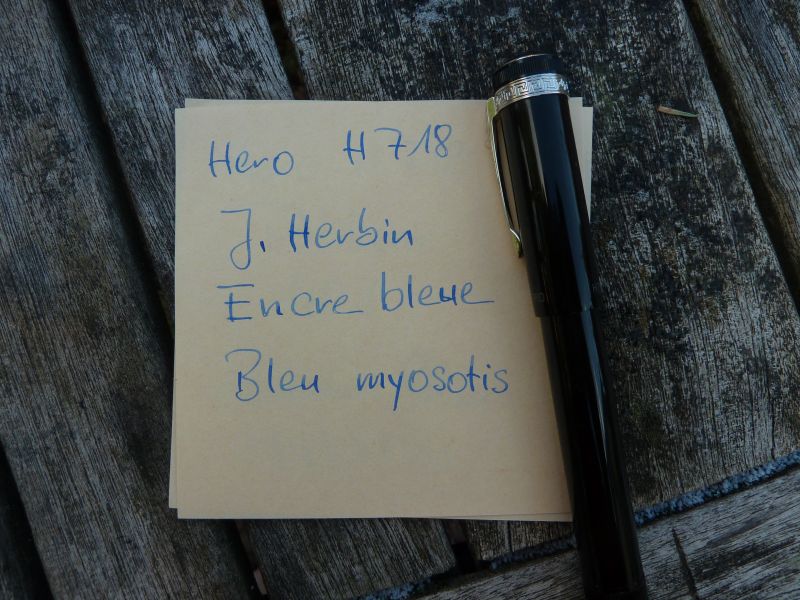 Hero H718
J. Herbin
Encre bleue
Bleu myosotis